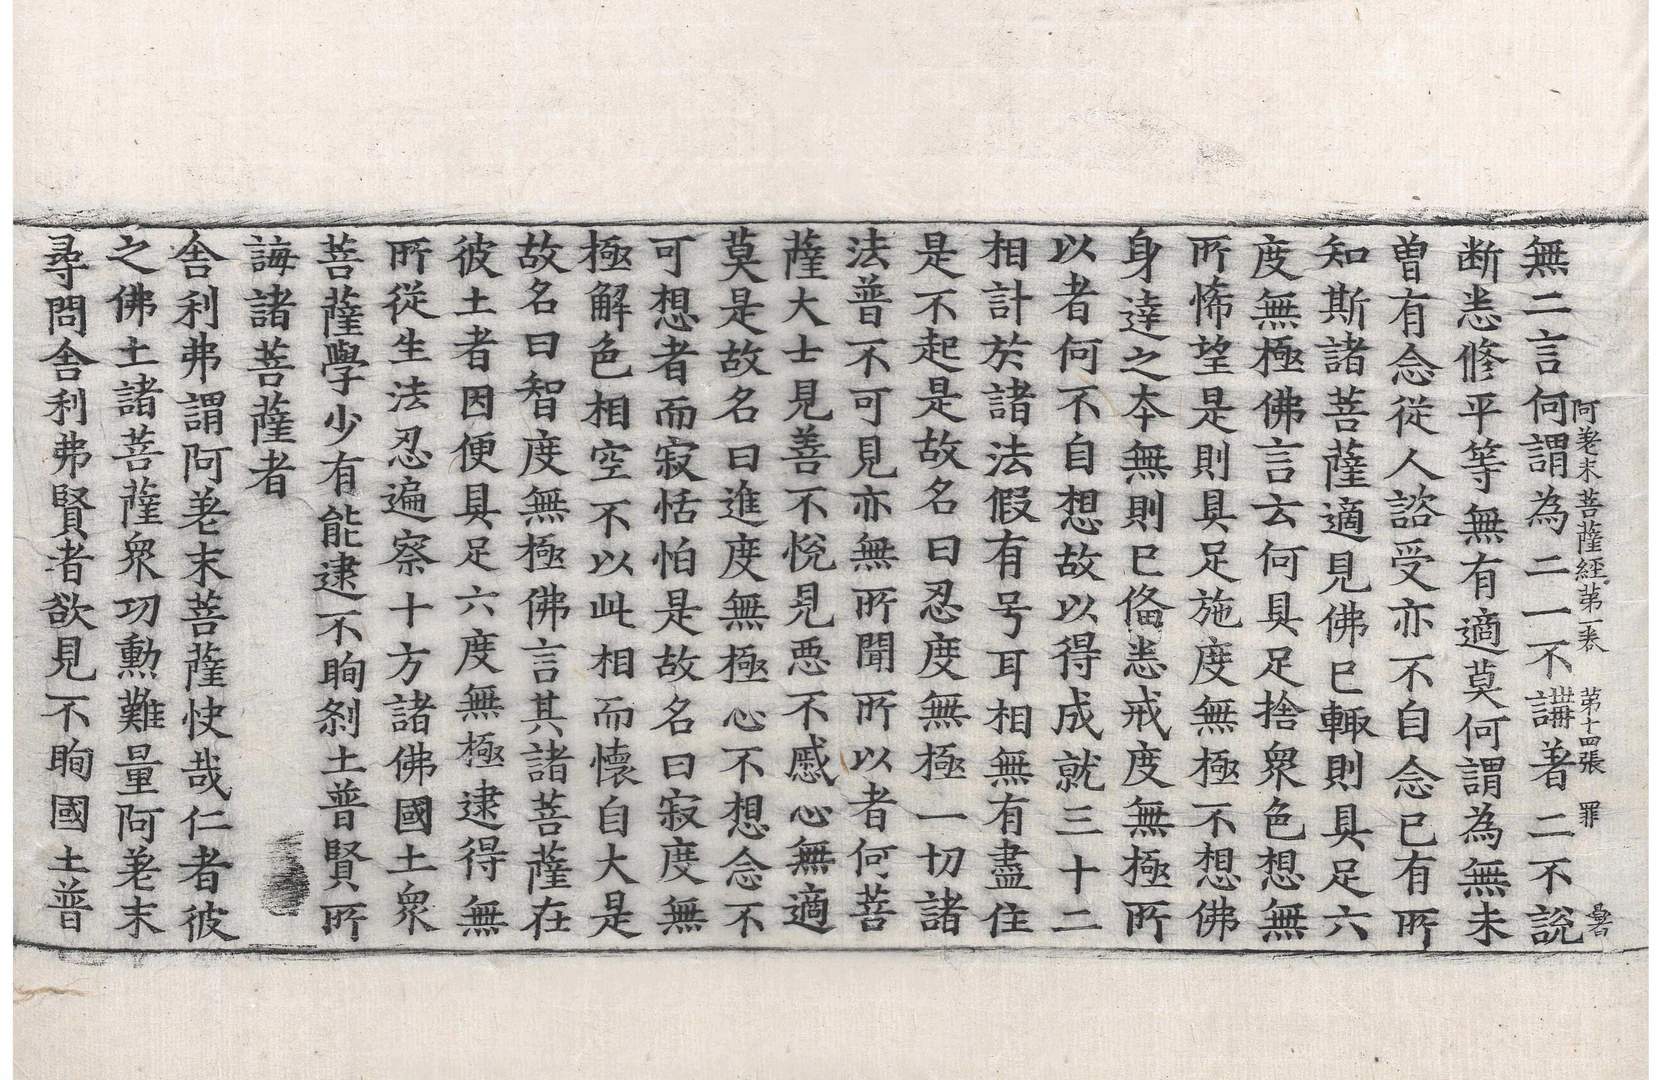 阿差末菩薩經第一卷 第十四張 罪
無二言何謂為二一不講著二不說
断恙修平等無有適莫何謂為無未
曽有念從人諮受亦不自念已有所
知斯諸菩薩適見佛已輙則具足六
度無極佛言云何具足捨衆色想無
所悕望是則具足施度無極不想佛
身達之本無則已俻恙戒度無極所
以者何不自想故以得成就三十二
相計於諸法假有号耳相無有盡住
是不起是故名曰忍度無極一切諸
法普不可見亦無所聞所以者何菩
薩大士見善不悅見惡不慼心無適
莫是故名曰進度無極心不想念不
可想者而寂恬怕是故名曰寂度無
極解色相空不以此相而懷自大是
故名曰智度無極佛言其諸菩薩在
彼土者因便具足六度無極逮得無
所從生法忍遍察十方諸佛國土衆
菩薩學少有能逮不眴剎土普賢所
誨諸菩薩者
舎利弗謂阿差末菩薩快哉仁者彼
之佛土諸菩薩衆功勳難量阿差末
尋問舎利弗賢者欲見不眴國土普